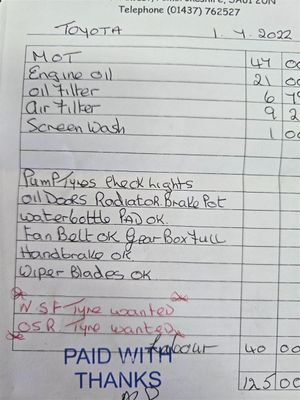 Telephone (01437) 762527
TOYOTA 1. 4. 2022
MOT 47 00
Engine oil 21 00
oil Filter 6
air Filter 9
Screen Wash 1 00
Pump Tyres Check Lights
oil Doors Radiator. Brake Pot
waterbottle PAD OK.
Fan Belt OK Gear Box full
Handbrake OK.
Wiper Blades OK
N.S.F Tyre wanted
O.S.R. Tyre wanted
Labour 40 00
PAID WITH
THANKS
125 00